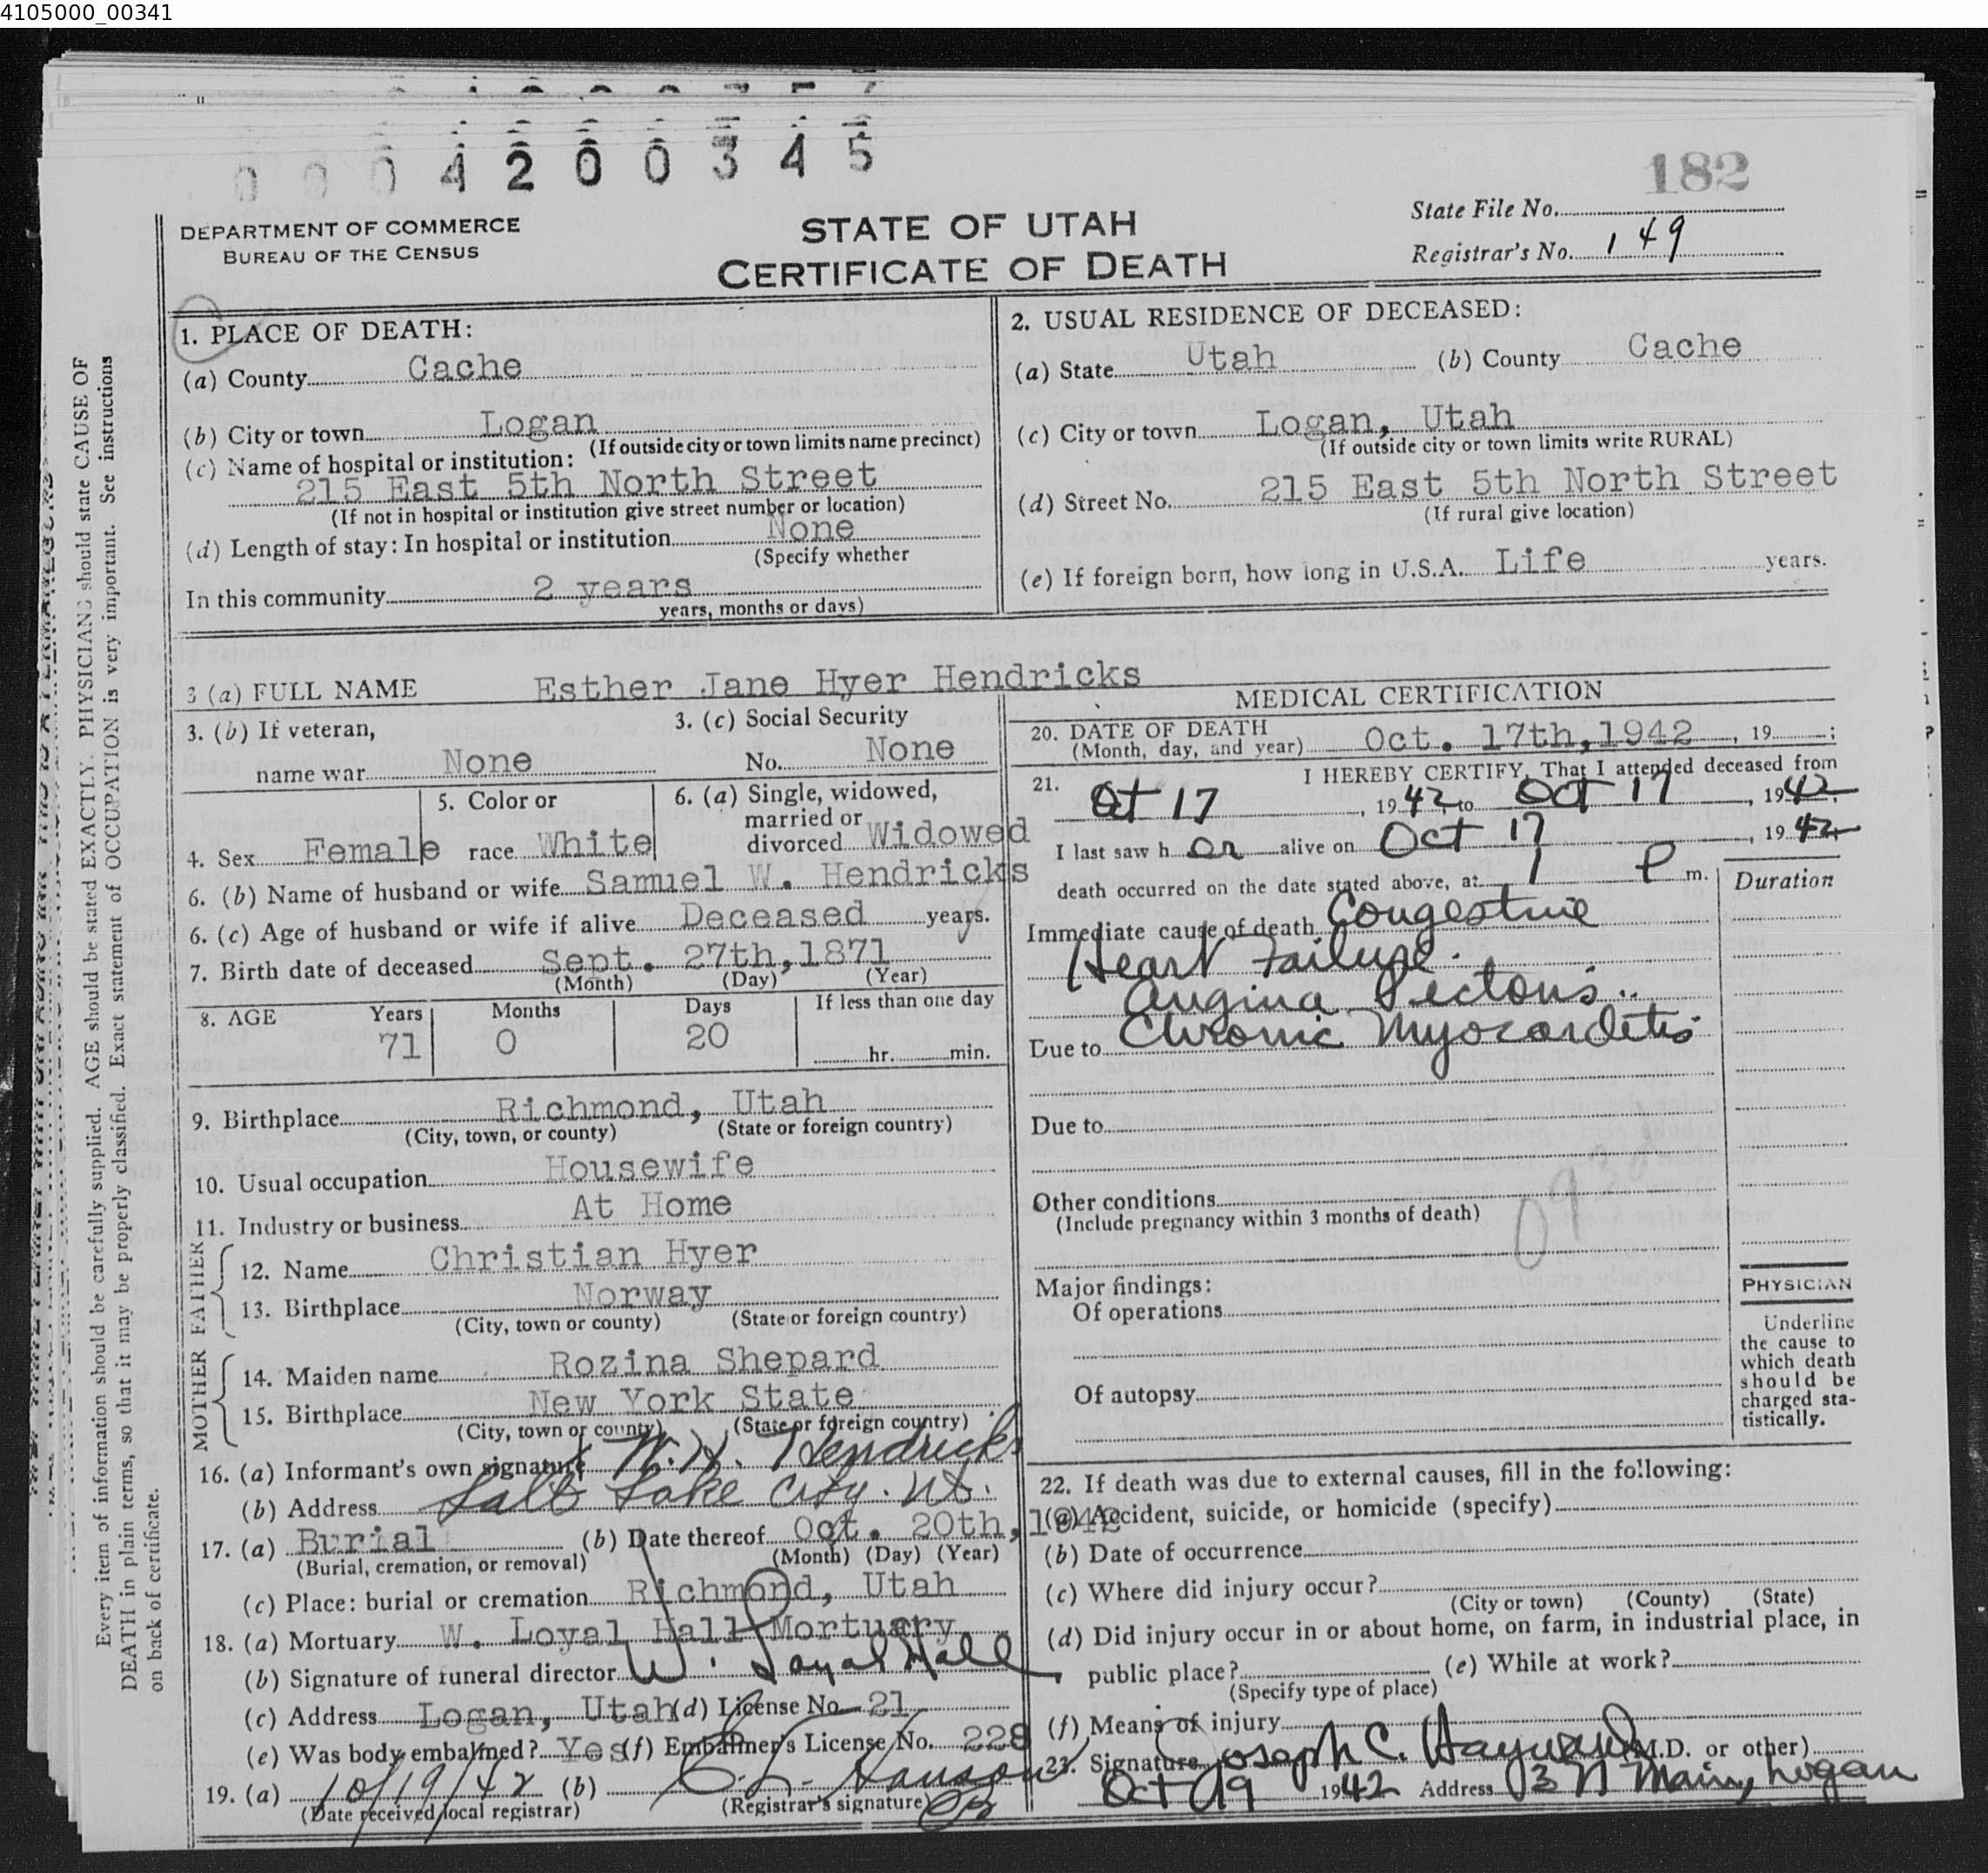 4105000_00341
0 0 0 4 2 0 0 3 4 5
182
DEPARTMENT OF COMMERCE
BUREAU OF THE CENSUS
STATE OF UTAH
CERTIFICATE OF DEATH
State File No.
Registrar's No. 149
1. PLACE OF DEATH:
(a) County Cache
(b) City or town Logan
(If outside city or town limits name precinct)
(c) Name of hospital or institution:
215 East 5th North Street
(If not in hospital or institution give street number or location)
(d) Length of stay: In hospital or institution None
(Specify whether
In this community 2 years
years, months or days)
2. USUAL RESIDENCE OF DECEASED:
(a) State Utah (b) County Cache
(c) City or town Logan, Utah
(If outside city or town limits write RURAL)
(d) Street No. 215 East 5th North Street
(If rural give location)
(e) If foreign born, how long in U.S.A. Life years.
3 (a) FULL NAME Esther Jane Hyer Hendricks
3. (b) If veteran,
name war None
3. (c) Social Security
No. None
4. Sex Female
5. Color or
race White
6. (a) Single, widowed,
married or
divorced Widowed
6. (b) Name of husband or wife Samuel W. Hendricks
6. (c) Age of husband or wife if alive Deceased years.
7. Birth date of deceased Sept. 27th, 1871
(Month) (Day) (Year)
8. AGE Years Months Days If less than one day
71 0 20 hr. min.
9. Birthplace Richmond, Utah
(City, town, or county) (State or foreign country)
10. Usual occupation Housewife
11. Industry or business At Home
FATHER
12. Name Christian Hyer
13. Birthplace Norway
(City, town or county) (State or foreign country)
MOTHER
14. Maiden name Rozina Shepard
15. Birthplace New York State
(City, town or county) (State or foreign country)
16. (a) Informant's own signature W. H. Hendricks
(b) Address Salt Lake City. Ut.
17. (a) Burial (b) Date thereof Oct. 20th, 1942
(Burial, cremation, or removal) (Month) (Day) (Year)
(c) Place: burial or cremation Richmond, Utah
18. (a) Mortuary W. Loyal Hall Mortuary
(b) Signature of funeral director W. Loyal Hall
(c) Address Logan, Utah (d) License No. 21
(e) Was body embalmed? Yes (f) Embalmer's License No. 228
19. (a) 10/19/42 (b) Hanson
(Date received local registrar) (Registrar's signature)
MEDICAL CERTIFICATION
20. DATE OF DEATH
(Month, day, and year) Oct. 17th, 1942, 19 ;
21. I HEREBY CERTIFY, That I attended deceased from
Oct 17, 1942, to Oct 17, 1942,
I last saw h er alive on Oct 17, 1942,
death occurred on the date stated above, at 1 P m.
Duration
Immediate cause of death Congestive
Heart Failure.
Angina Pectoris.
Due to Chronic Myocarditis
Due to
Other conditions
(Include pregnancy within 3 months of death)
Major findings:
Of operations
Of autopsy
PHYSICIAN
Underline
the cause to
which death
should be
charged sta-
tistically.
22. If death was due to external causes, fill in the following:
(a) Accident, suicide, or homicide (specify)
(b) Date of occurrence
(c) Where did injury occur?
(City or town) (County) (State)
(d) Did injury occur in or about home, on farm, in industrial place, in
public place? (e) While at work?
(Specify type of place)
(f) Means of injury
23. Signature Joseph C. Hayward (M.D. or other)
Oct 19 1942 Address 13 N Main, Logan
Every item of information should be carefully supplied. AGE should be stated EXACTLY. PHYSICIANS should state CAUSE OF
DEATH in plain terms, so that it may be properly classified. Exact statement of OCCUPATION is very important. See instructions
on back of certificate.